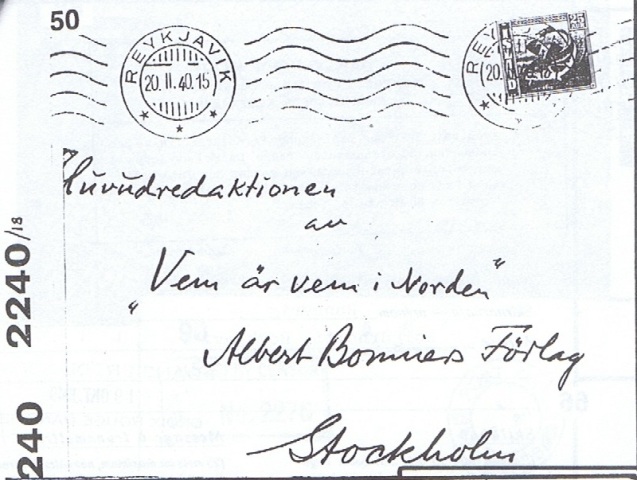 50
REYKJAVIK
20.II.40.15
25
Huvudredaktionen
av
"Vem är vem i Norden"
Albert Bonniers Förlag
Stockholm
2240/18
240